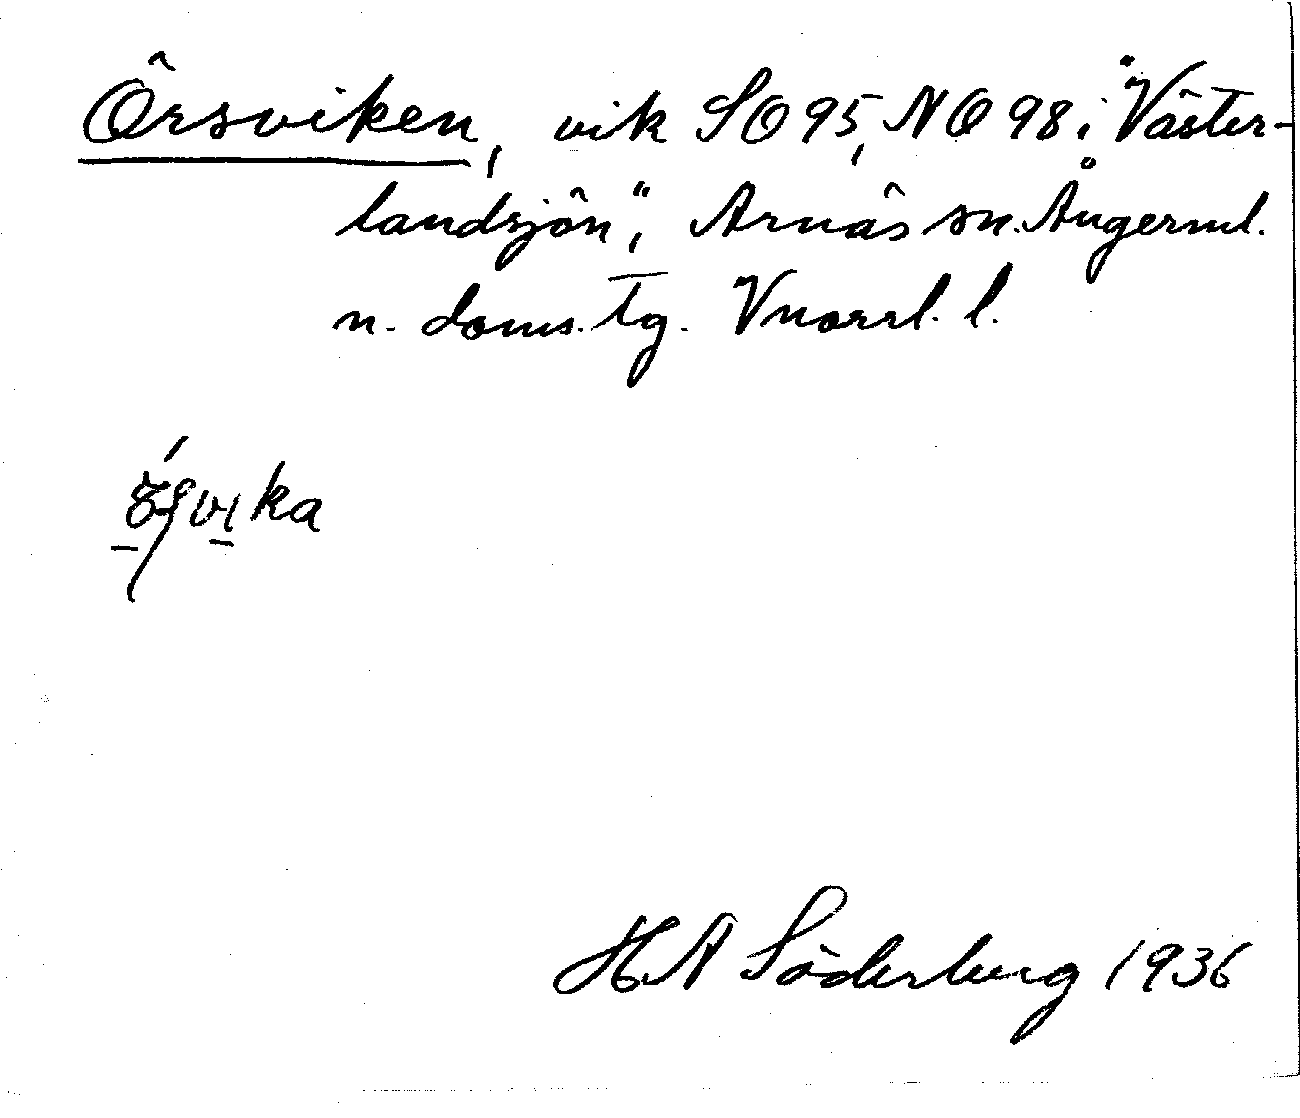 Örsviken, vik SO 95, NO 98 i "Väster-
landsjön", Arnäs sn. Ångerml.
n. doms. tg. Vnorrl. l.
H A Söderberg 1936